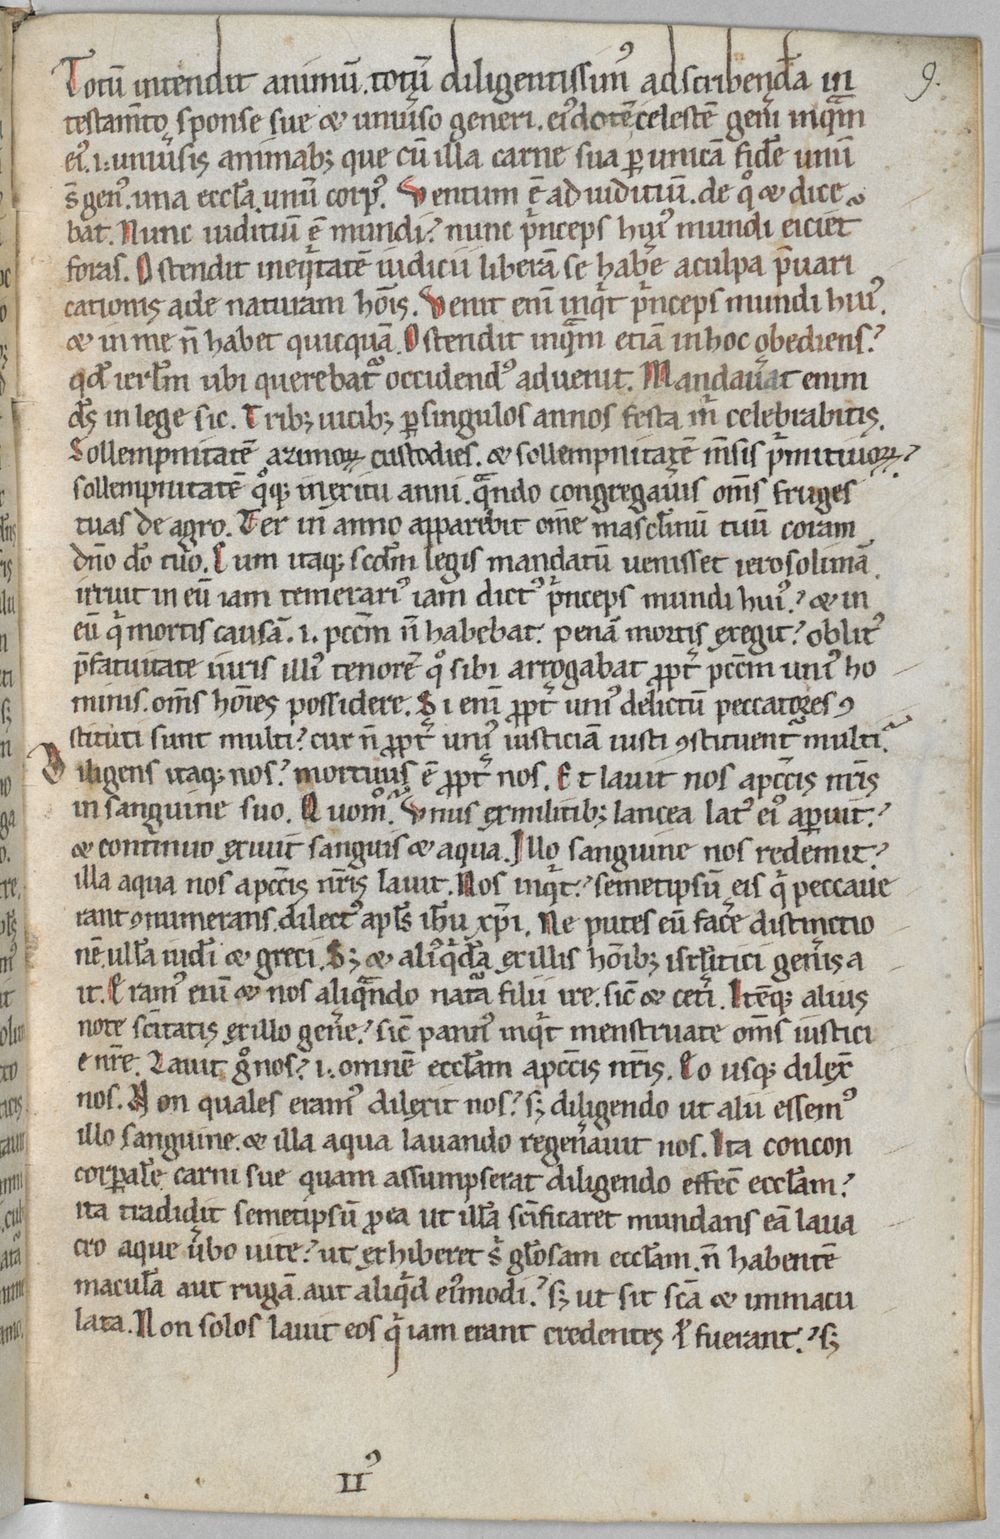 9.
Totū intendit animū. totū diligentissim᷒ adscribenda in
testam̄to sponse sue & uniu̾so generi. ei᷒ dotē celestē gen̾i inquā
ei᷒ .i. uniu̾sis animab; que cū illa carne sua ꝑ unicā fidē unū
s̄ gen᷒. una eccl̄a. unū corp᷒. Ventum ē ad iuditiū. de qͦ & dice
bat. Nunc iuditiū ē mundi? nunc pͥnceps hui᷒ mundi eiciet᷑
foras. Ostendit in eqͥtate iudicii liberā se habe̾ a culpa p̄uari
cationis ade naturam hōis. Venit eni̅ inqͥt pͥnceps mundi hui᷒.
& in me n̄ habet quicquā. Ostendit inquā etiā in hoc obediens?
qd̄ ierl̄m ubi querebat᷑ occidend᷒ aduenit. Mandauat enim
ds̄ in lege sic. Trib; uicib; ꝑ singulos annos festa m̄ celebrabitis.
Sollempnitatē azimoꝝ custodies. & sollempnitatē m̄sis pͥmitiuoꝝ?
sollempnitatē qͦq; in exitu anni. quando congregau̾is om̄s fruges
tuas de agro. Ter in anno apparebit om̄e mascl̄inū tuū coram
dn̄o do̅ tuo. Cum itaq; scd̄m legis mandatū uenisset ierosolimā.
irruit in eū iam temerari᷒ iam dict᷒ pͥnceps mundi hui᷒? & in
eū qͥ mortis causā .i. pcc̄m n̄ habebat. penā mortis exegit? oblit᷒
p̄ fatuitate iuris illi᷒ tenorē qͦ sibi arrogabat ꝓpt̾ pcc̄m uni᷒ ho
minis. om̄s hōies possidere. Si eni̅ ꝓpt̾ uni᷒ delictū peccatores ꝯ
stituti sunt multi? cur n̄ ꝓpt̾ uni᷒ iusticiā iusti ꝯstituent᷑ multi?
Diligens itaq; nos? mortuus ē ꝓpt̾ nos. Et lauit nos a pcc̄is nr̄is
in sanguine suo. Quomͦ? Vnus ex militib; lancea lat᷒ ei᷒ aꝑuit?
& continuo exiuit sanguis & aqua. Illo sanguine nos redemit?
illa aqua nos a pcc̄is nr̄is lauit. Nos inqͥt? semetipsū eis qͥ peccaue
rant ꝯnumerans. dilect᷒ apl̄s ih̄u xp̄i. Ne putes eū face̾ distinctio
nē ullā iudi̅ & greci. S; & ali᷒ qͥdā ex illis hōib; isrl̄itici gen̾is a
it. Eram᷒ eni̅ & nos aliquando natᷓ filii ire. sic̄ & cet̾i. Itēq; alius
note sc̄itatis ex illo gene̾? sic̄ pann᷒ inqͥt menstruate om̄s iustici
e nr̄e. Lauit gͦ nos? .i. omnē eccl̄am a pcc̄is nr̄is. Eo usq; dilex̄
nos. Non quales eram᷒ dilexit nos? s; diligendo ut alii essem᷒
illo sanguine. & illa aqua lauando regen̾auit nos. Ita concon
corꝑale̾ carni sue quam assumpserat diligendo effec̄ eccl̄am?
ita tradidit semetipsū ꝓ ea ut illā sc̄ificaret mundans eā laua
cro aque u̾bo uite? ut exhiberet s̄ gl̄osam eccl̄am. n̄ habentē
maculā aut rugā. aut aliqͥd ei᷒modi? s; ut sit sc̄a & immacu
lata. Non solos lauit eos qͥ iam erant credentes ł fuerant? s;
II᷒